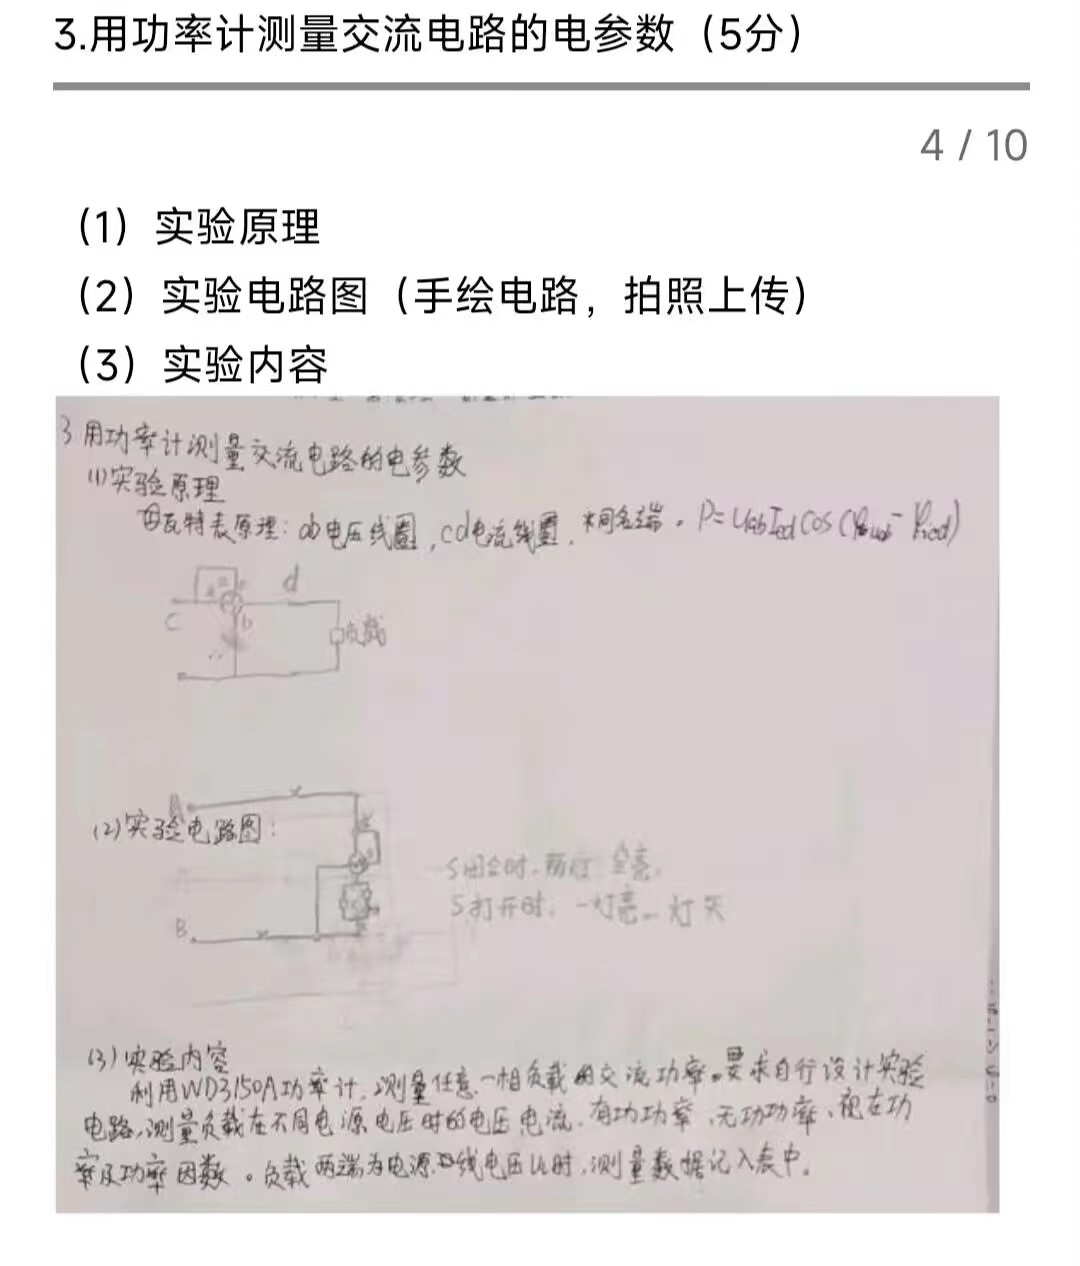 3.用功率计测量交流电路的电参数（5分）
4 / 10
（1）实验原理
（2）实验电路图（手绘电路，拍照上传）
（3）实验内容
3 用功率计测量交流电路的电参数
(1)实验原理
瓦特表原理: ab电压线圈, cd电流线圈, *同名端。P=UabIcdCos(
d
C
b
负载
A
(2)实验电路图:
S闭合时.两灯全亮.
B
S打开时.一灯亮一灯灭
(3)实验内容
利用WD3150A功率计,测量任意一相负载的交流功率。要求自行设计实验
电路,测量负载在不同电源电压时的电压电流.有功功率、无功功率、视在功
率及功率因数。负载两端为电源线电压UL时,测量数据记入表中。